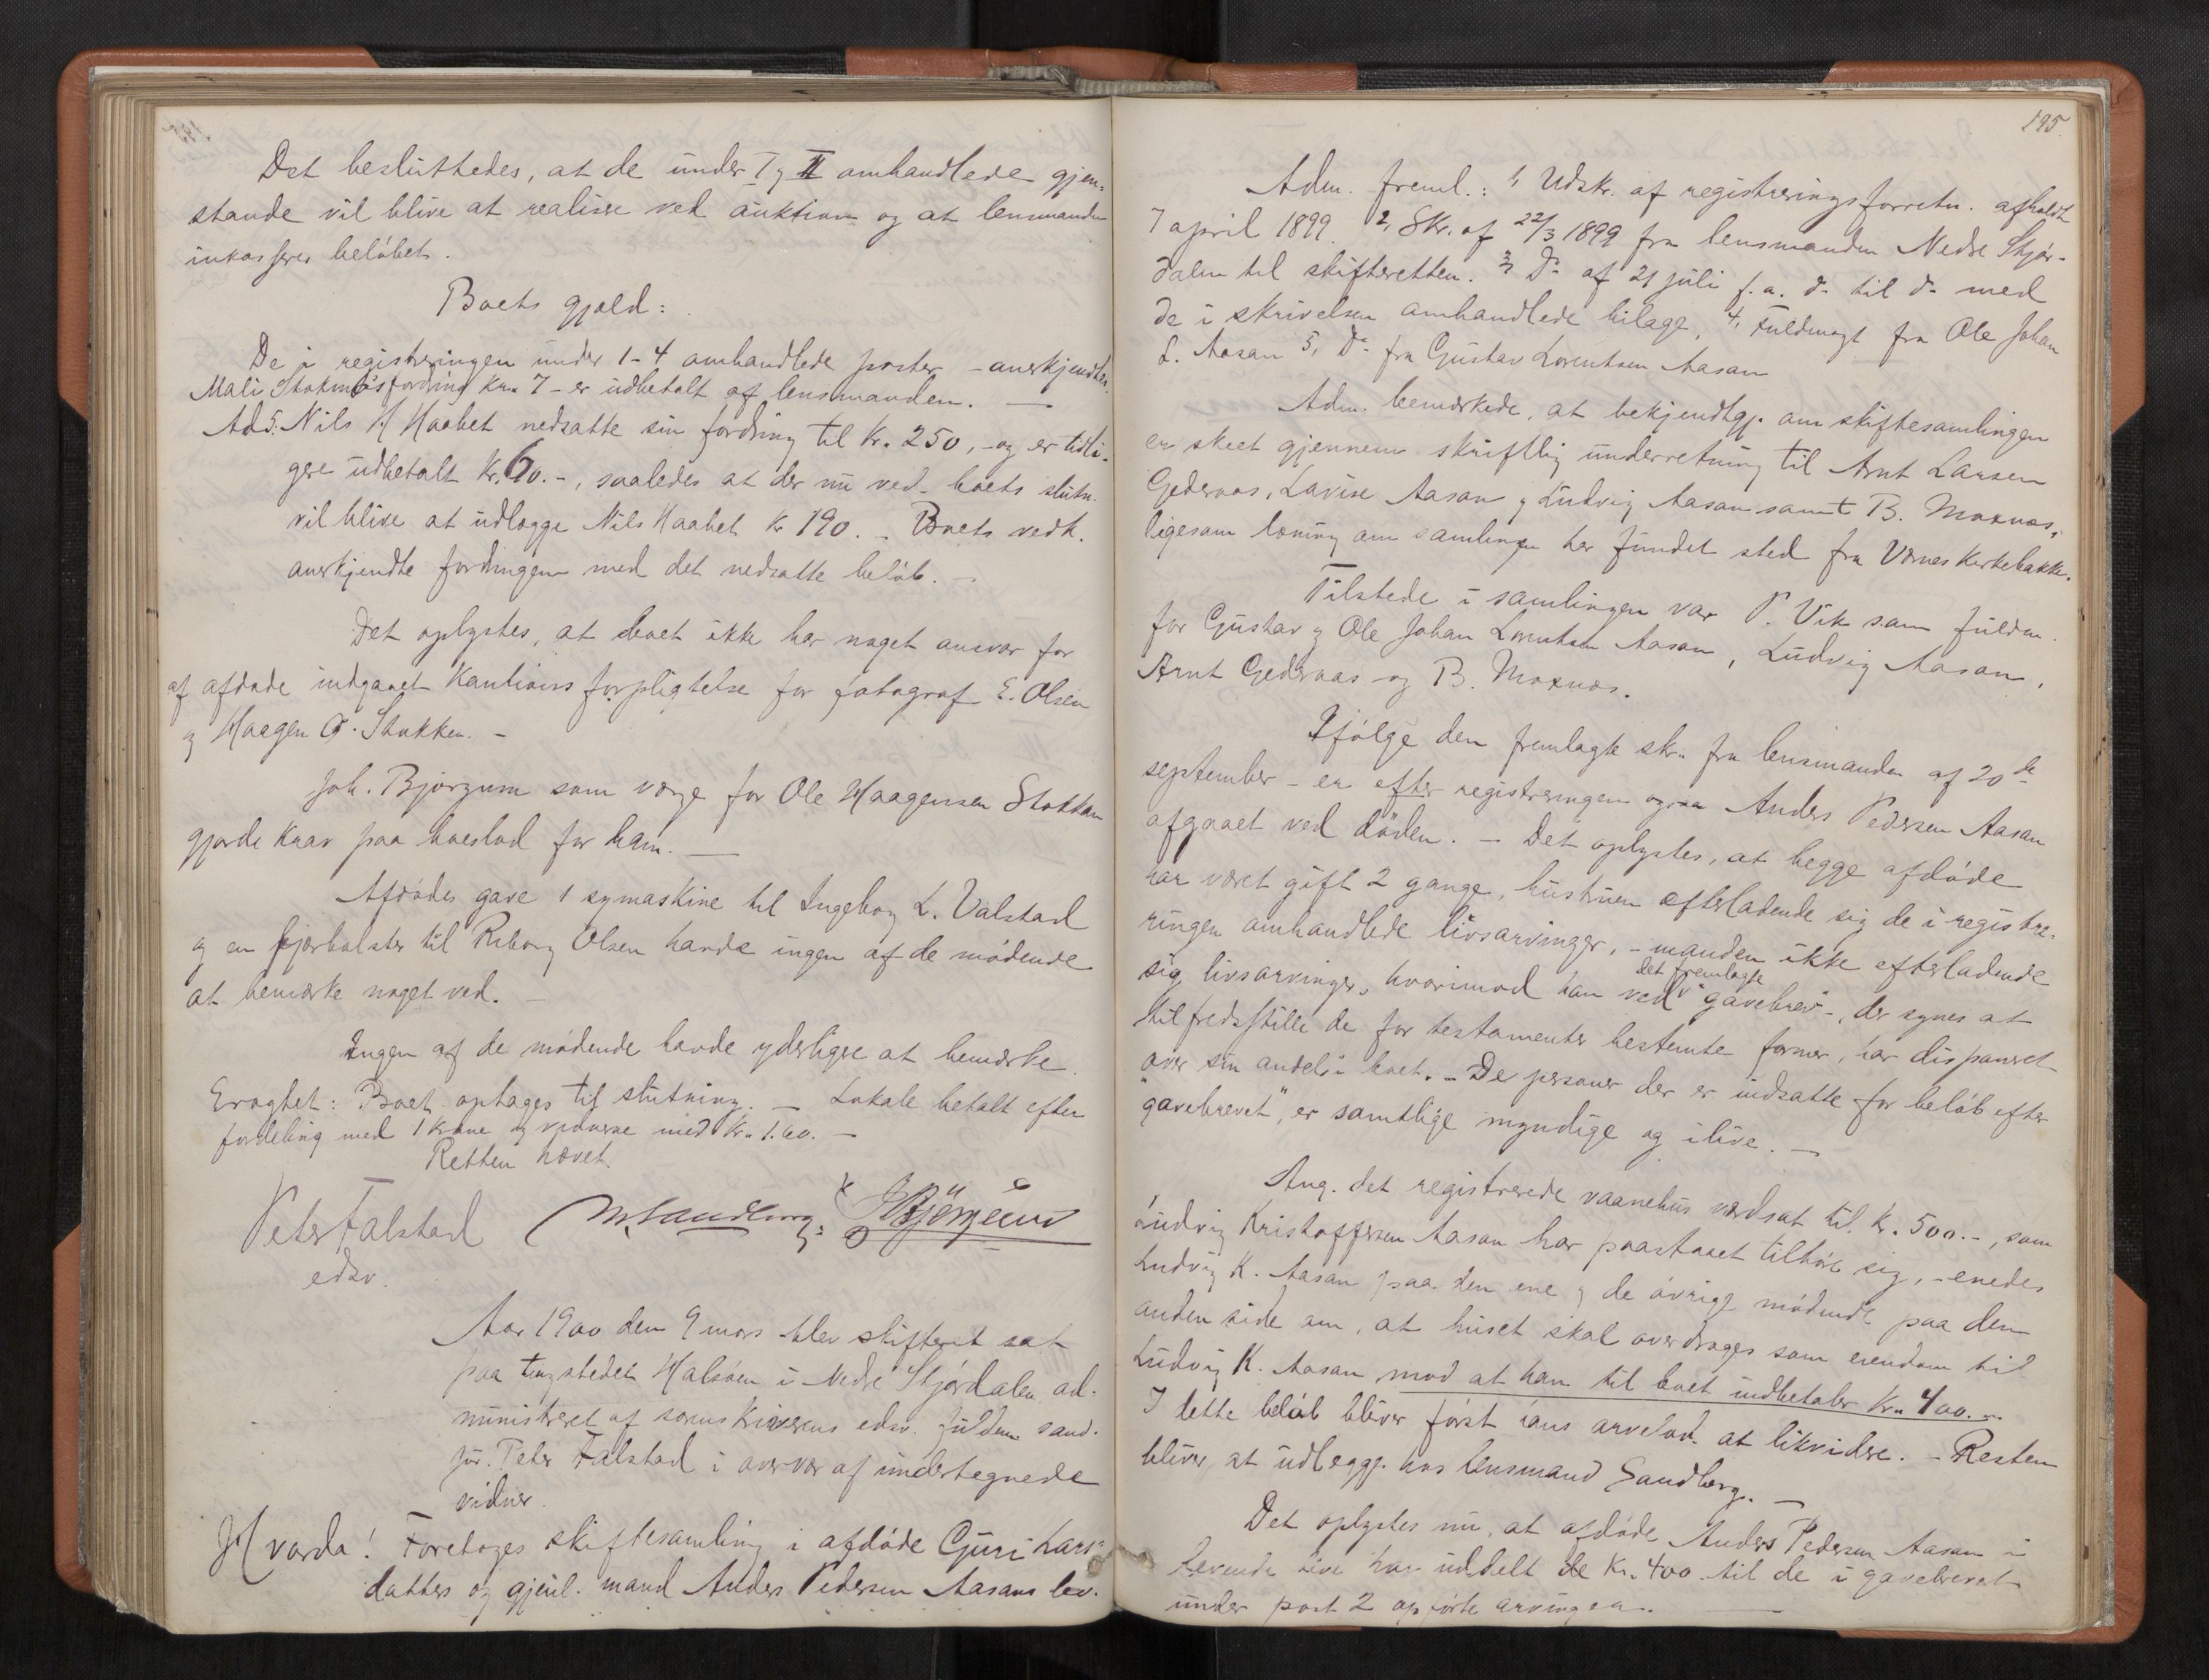 Det besluttedes, at de under I og II omhandlede gjen-
stande vil blive at realisere ved auktion og at lensmanden
inkasserer beløbet.
Boets gjæld:
De i registreringen under 1-4 omhandlede poster - anerkjendtes.
Mali Stokmo's fordring Kr. 7 - er udbetalt af lensmanden. —
Ad 5. Nils H Haabet nedsatte sin fordring til Kr. 250, - og er tidli-
gere udbetalt Kr. 60.-, saaledes at der nu ved boets slutn.
vil blive at udlægge Nils Haabet Kr 190. - Boets vedk.
anerkjendte fordringen med det nedsatte beløb. -
Det oplystes, at boet ikke har noget ansvar for
af afdøde indgaaet Kautionsforpligtelse for fotograf E. Olsen
og Haagen O. Stokken. -
Joh. Bjørgum som værge for Ole Haagensen Stokkan
gjorde krav paa boeslod for ham. —
Afdødes gave 1 symaskine til Ingeborg L. Valstad
og en fjærbolster til Reborg Olsen havde ingen af de mødende
at bemærke noget ved. -
Ingen af de mødende havde yderligere at bemærke.
Eragtet: Boet optages til slutning. - Lokale betalt efter
fordeling med 1 Krone og vidnerne med Kr. 1.60. -
Retten hævet.
Peter Falstad M Sandborg JBjörgum
edsv.
Aar 1900 den 9 mars blev skifteret sat
paa tingstedet Halsøen i Nedre Stjørdalen ad-
ministreret af sorenskriverens edsv. fuldm. cand.
jur. Peter Falstad i overvær af undertegnede
vidner.
Hvorda! Foretages skiftesamling i afdøde Guri Lars-
datters og gjenl. mand Anders Pedersen Aasans bo.
195.
Adm. freml.: 1, Udskr. af registreringsforretn. afholdt
7 april 1899. 2, Skr. af 22/3 1899 fra lensmanden Nedre Stjør-
dalen til skifteretten. 3, Do af 21 juli f.a. do til do med
de i skrivelsen omhandlede bilage, 4, Fuldmagt fra Ole Johan
L. Aasan 5, Do fra Gustav Lorentsen Aasan
Adm. bemærkede, at bekjendtgj. om skiftesamlingen
er skeet gjennem skriftlig underretning til Arnt Larsen
Gederaas, Lavise Aasan og Ludvig Aasan samt B. Moxnæs,
ligesom læsning om samlingen har fundet sted fra Værnes kirkebakke.
Tilstede i samlingen var P. Vik som fuldm.
for Gustav og Ole Johan Lorentsen Aasan, Ludvig Aasan,
Arnt Gederaas og B. Moxnæs.
Ifølge den fremlagte skr. fra lensmanden af 20de
september - er efter registreringen ogsaa Anders Pedersen Aasan
afgaaet ved døden. - Det oplystes, at begge afdøde
har været gift 2 gange, hustruen efterladende sig de i registre-
ringen omhandlede livsarvinger, - manden ikke efterladende
sig livsarvinger, hvorimod han ved det fremlagte "gavebrev" -, der synes at
tilfredsstille de for testamenter bestemte former, har disponeret
over sin andel i boet. - De personer der er indsatte for beløb efter
"gavebrevet", er samtlige myndige og ilive. —
Ang. det registrerede vaanehus værdsat til Kr. 500.-, som
Ludvig Kristoffersen Aasan har paastaaet tilhøre sig, - enedes
Ludvig K. Aasan paa den ene og de øvrige mødende paa den
anden side om, at huset skal overdrages som eiendom til
Ludvig K. Aasan mod at han til boet indbetaler Kr. 400.-
I dette beløb bliver først hans arvelod at likvidere. - Resten
bliver at udlægge hos lensmand Sandborg. —
Det oplystes nu, at afdøde Anders Pedersen Aasan i
levende live har uddelt de Kr. 400 til de i gavebrevet
under post 2 opførte arvinger. —